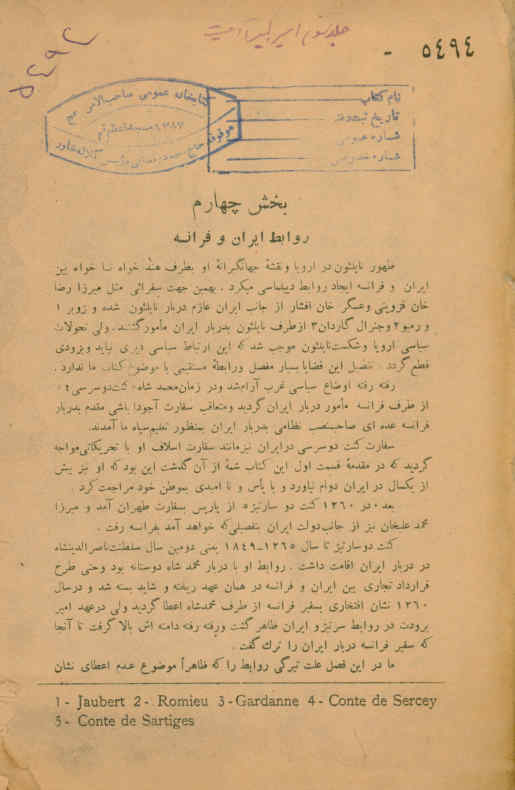 جلد سوم امیرکبیر
۵۴۹۴ -
۵۴۹۲
کتابخانه عمومی صاحب الامر عج
۱۳۸۷
موقوفه حاج
نام کتاب
تاریخ ثبت دفتر
شماره عمومی
شماره خصوصی
بخش چهارم
روابط ایران و فرانسه
ظهور ناپلئون در اروپا و نقشهٔ جهانگیرانهٔ او بطرف هند خواه نا خواه بین
ایران و فرانسه ایجاد روابط دیپلماسی میکرد . بهمین جهت سفرائی مثل میرزا رضا
خان قزوینی و عسگر خان افشار از جانب ایران عازم دربار ناپلئون شده و ژوبر ۱
و رمیو ۲ و جنرال گاردان ۳ از طرف ناپلئون بدربار ایران مأمور گشتند . ولی تحولات
سیاسی اروپا و شکست ناپلئون موجب شد که این ارتباط سیاسی دیری نپاید و بزودی
قطع گردد . تفصیل این قضایا بسیار مفصل و رابطهٔ مستقیمی با موضوع کتاب ما ندارد .
رفته رفته اوضاع سیاسی غرب آرام شد و در زمان محمد شاه «کنت دوسرسی ۴»
از طرف فرانسه مأمور دربار ایران گردید و متعاقب سفارت آجودانباشی مقدم بدربار
فرانسه عده ای صاحبمنصب نظامی بدربار ایران بمنظور تعلیم سپاه ما آمدند.
سفارت کنت دوسرسی در ایران نیز مانند سفارت اسلاف او با تحریکاتی مواجه
گردید که در مقدمهٔ قسمت اول این کتاب شمهٔ از آن گذشت این بود که او نیز بیش
از یکسال در ایران دوام نیاورد و با یأس و نا امیدی بموطن خود مراجعت کرد .
بعد در ۱۲۶۰ کنت دو سارتیژ ۵ از پاریس بسفارت طهران آمد و میرزا
محمد علیخان نیز از جانب دولت ایران بتفصیلی که خواهد آمد بفرانسه رفت .
کنت دوسارتیژ تا سال ۱۲۶۵-۱۸۴۹ یعنی دومین سال سلطنت ناصرالدینشاه
در دربار ایران اقامت داشت . روابط او با دربار محمد شاه دوستانه بود و حتی طرح
قرارداد تجاری بین ایران و فرانسه در همان عهد ریخته و شاید بسته شد و در سال
۱۲۶۰ نشان افتخاری بسفیر فرانسه از طرف محمدشاه اعطا گردید ولی در عهد امیر
برودت در روابط سرتیژ و ایران ظاهر گشت و رفته رفته دامنه اش بالا گرفت تا آنجا
که سفیر فرانسه دربار ایران را ترك گفت .
ما در این فصل علت تیرگی روابط را که ظاهراً موضوع عدم اعطای نشان
1 - Jaubert 2 - Romieu 3 -Gardanne 4 - Conte de Sercey
5 - Conte de Sartiges